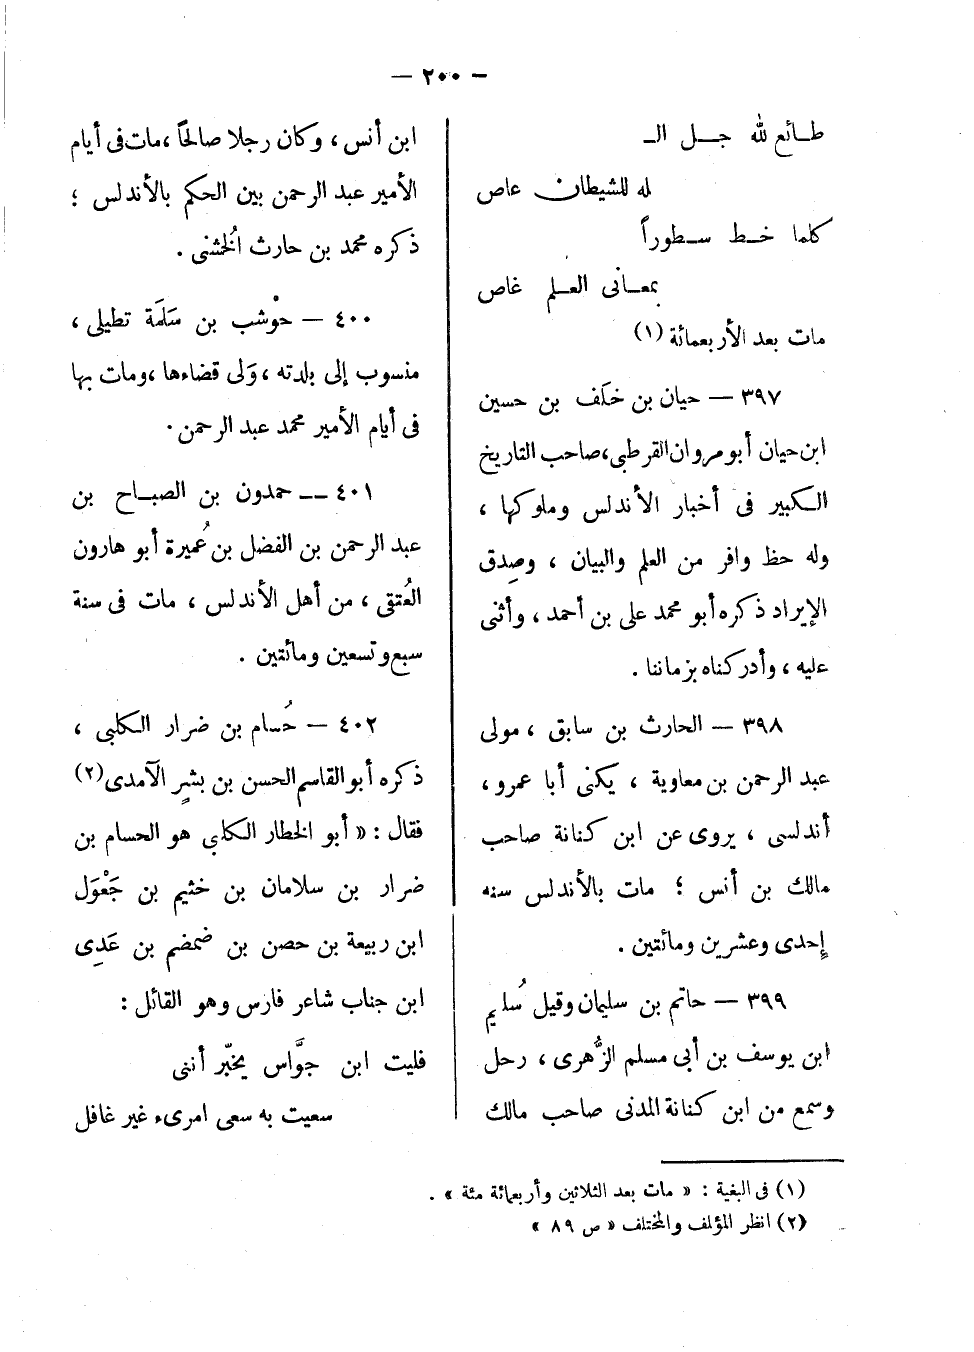 — ٢٠٠ —
طـائع لله جـــل الـ
له للشيطان عاص
كلما خـط سـطوراً
بمعـانى العـلم غاص
مات بعد الأربعمائة (١)
٣٩٧ — حيان بن خلَف بن حسين
ابن حيان أبو مروان القرطبى، صاحب التاريخ
الكبير فى أخبار الأندلس وملوكها ،
وله حظ وافر من العلم والبيان ، وصِدق
الإيراد ذكره أبو محمد على بن أحمد ، وأثنى
عليه ، وأدركناه بزماننا .
٣٩٨ — الحارث بن سابق ، مولى
عبد الرحمن بن معاوية ، يكنى أبا عمرو ،
أندلسى ، يروى عن ابن كنانة صاحب
مالك بن أنس ؛ مات بالأندلس سنه
إحدى وعشرين ومائتين .
٣٩٩ — حاتم بن سليمان وقيل سُليم
ابن يوسف بن أبى مسلم الزُّهرى ، رحل
وسمع من ابن كنانة المدنى صاحب مالك
ابن أنس ، وكان رجلا صالحاً ، مات فى أيام
الأمير عبد الرحمن بين الحكم بالأندلس ؛
ذكره محمد بن حارث الخُشنى .
٤٠٠ — حوْشب بن سَلَمَة تطيلى ،
منسوب إلى بلدته ، وَلى قضاءها ، ومات بها
فى أيام الأمير محمد عبد الرحمن .
٤٠١ — حمدون بن الصبـاح بن
عبد الرحمن بن الفضل بن عُميرة أبو هارون
العُتقى ، من أهل الأندلس ، مات فى سنة
سبع وتسعين ومائتين .
٤٠٢ — حُسام بن ضرار الكلبى ،
ذكره أبو القاسم الحسن بن بشرٍ الآمدى (٢)
فقال : « أبو الخطار الكلبى هو الحسام بن
ضرار بن سلامان بن خثيم بن جَعْوَل
ابن ربيعة بن حصن بن ضمضم بن عَدِى
ابن جناب شاعر فارس وهو القائل :
فليت ابن جوَّاس يخبّر أننى
سعيت به سعى امرىء غير غافل
(١) فى البغية : « مات بعد الثلاثين وأربعمائة مئة » .
(٢) انظر المؤلف والمختلف « ص ٨٩ »